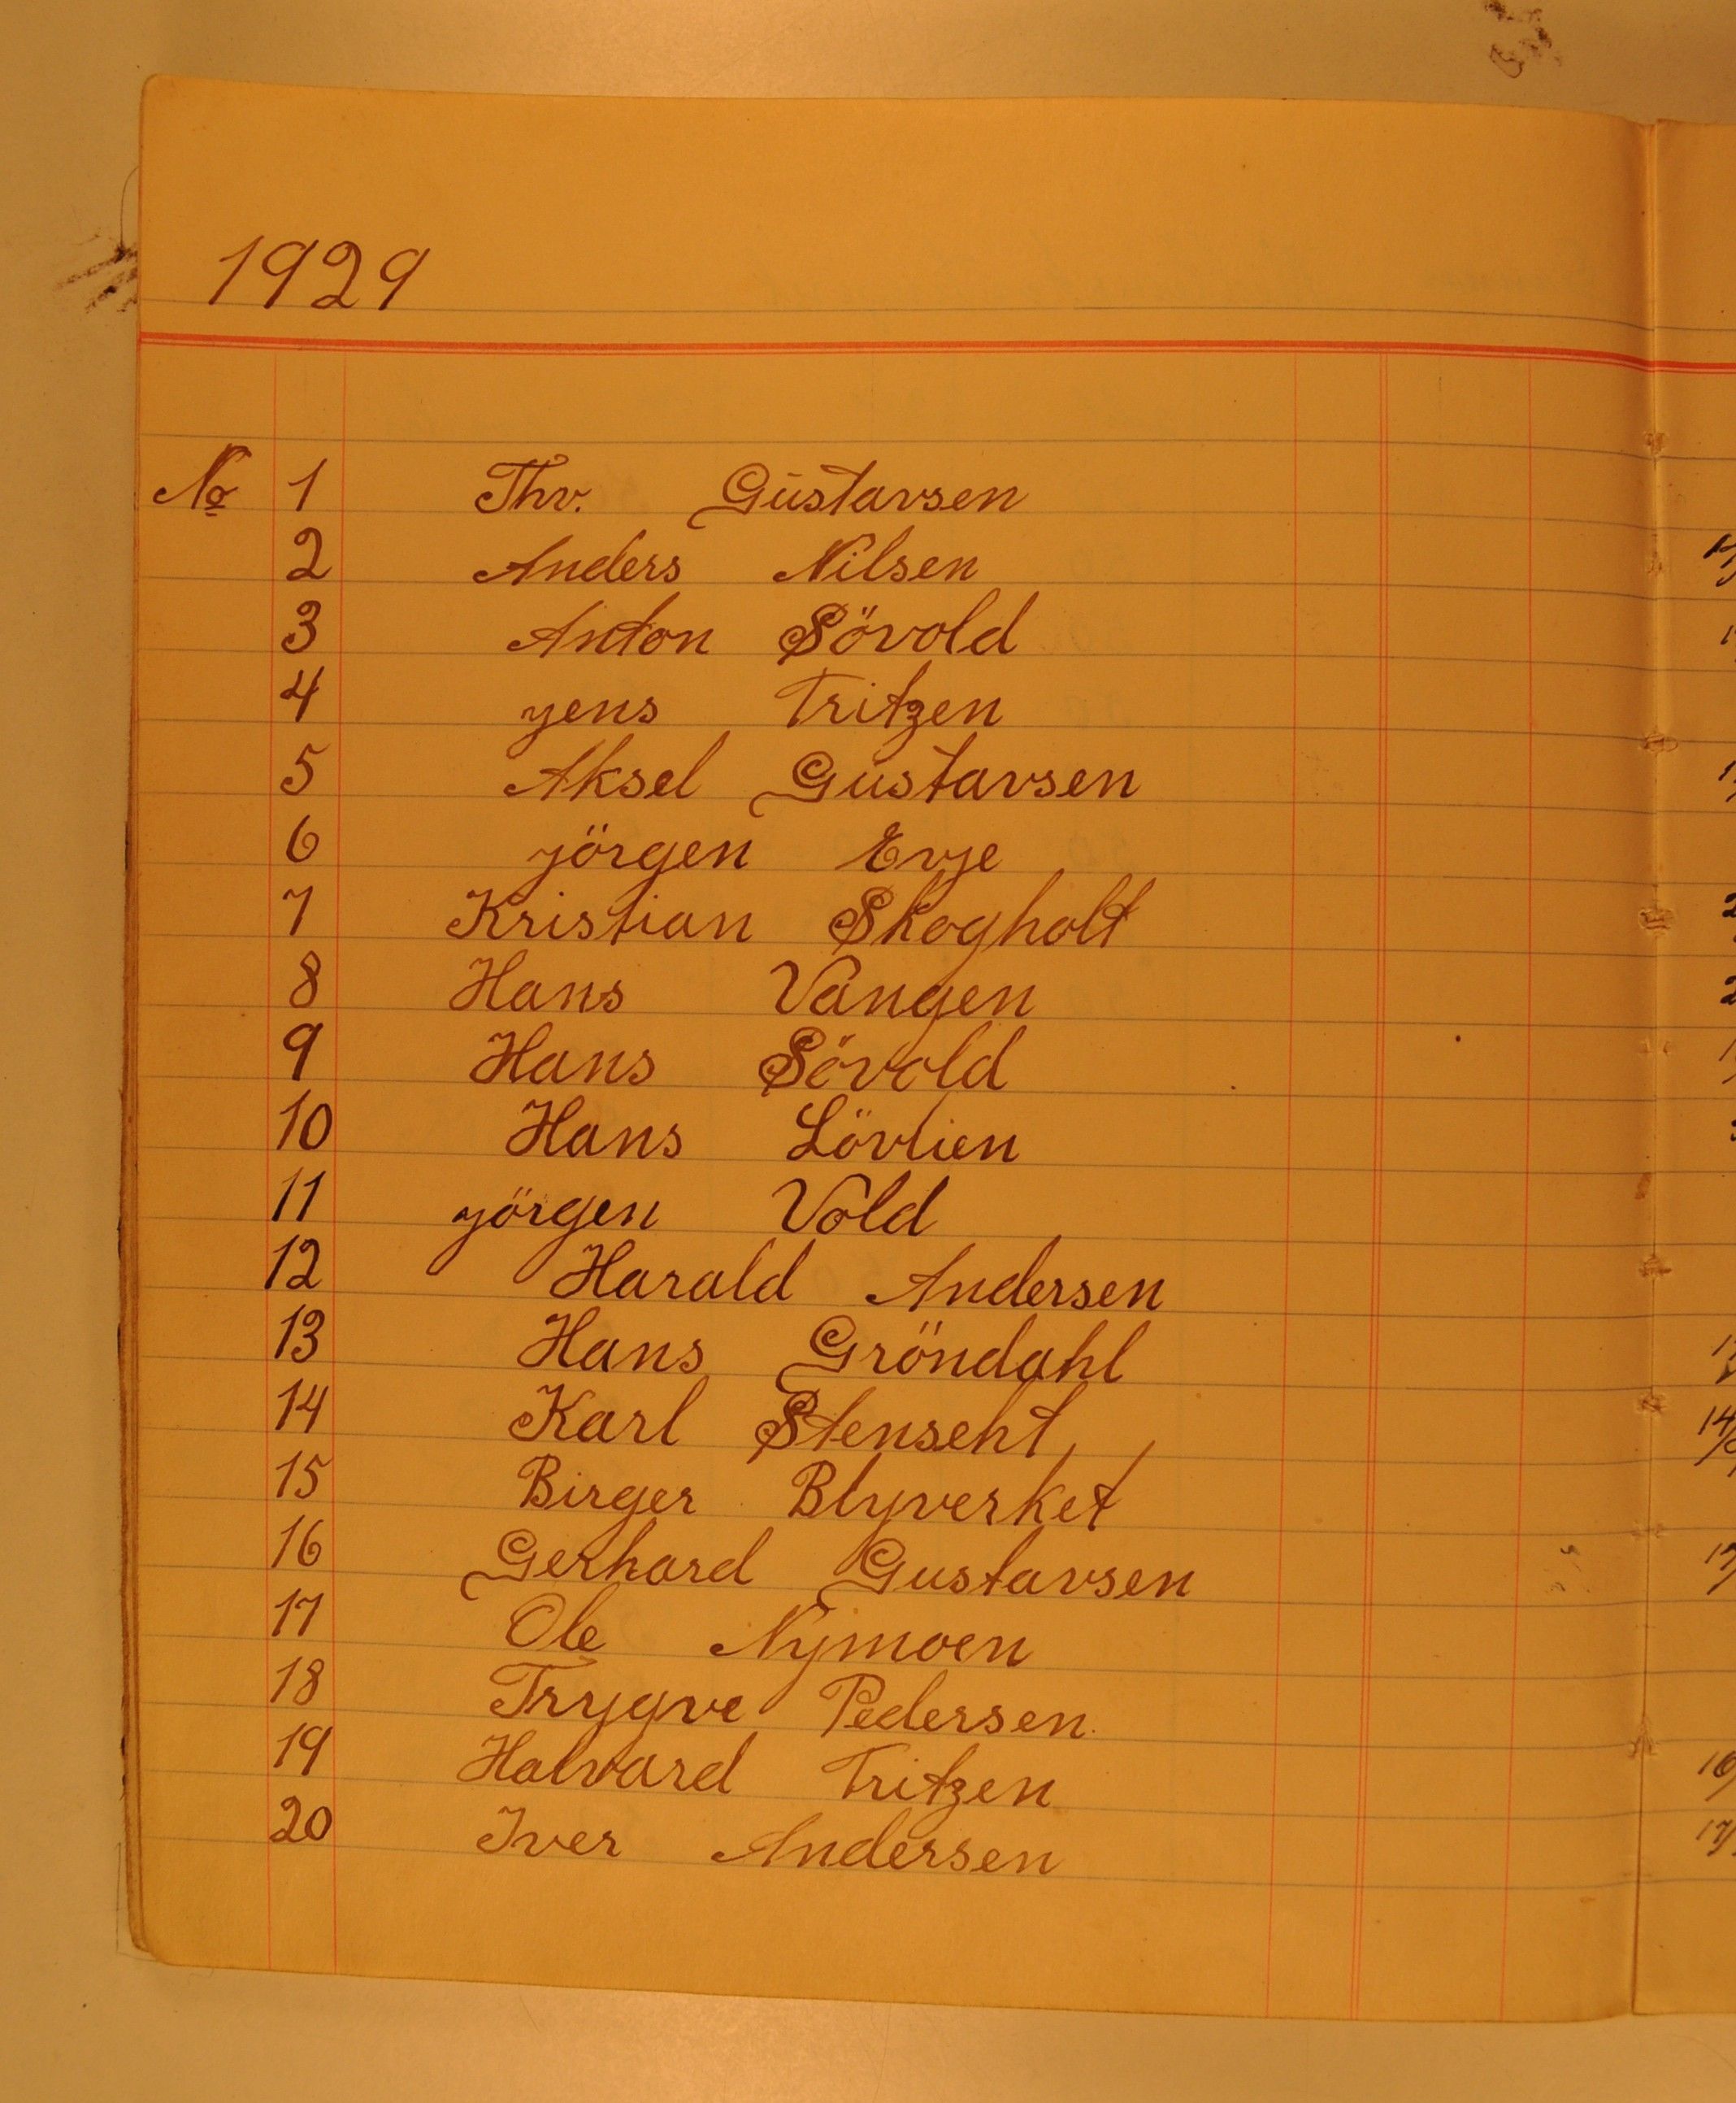 1929
No 1 Thv. Gustavsen
2 Anders Nilsen
3 Anton Sövold
4 Jens Fritzen
5 Aksel Gustavsen
6 Jörgen Evje
7 Kristian Skogholt
8 Hans Vangen
9 Hans Sövold
10 Hans Lövlien
11 Jörgen Vold
12 Harald Andersen
13 Hans Gröndahl
14 Karl Stenseht
15 Birger Blyverket
16 Gerhard Gustavsen
17 Ole Nymoen
18 Trygve Pedersen
19 Halvard Fritzen
20 Iver Andersen